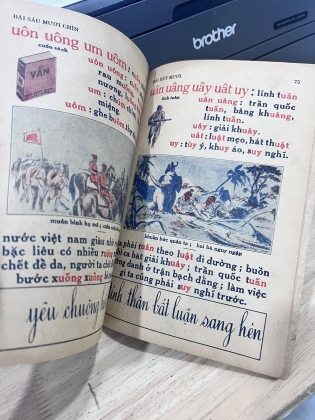 brother
BÀI SÁU MƯƠI CHÍN
uôn uông um uôm :
cuốn sách
VẦN
uôn uông : cuốn
rau muống
nương,
um : chùm
miệng.
uôm : ghe buồm
muôn binh họ mã ;
nước việt nam giàu
bạc liêu có nhiều ruộng
chết đề da, người ta ch
bước xuống xuồng
yêu chuộng
BÀI BẢY MƯƠI
75
uân uâng uây uât uy :
lính tuần
lính tuần
uân uâng : trần quốc
tuấn, bâng khuâng,
lính tuần.
uây : giải khuây.
uât : luật mẹo, hát thuật
uy : tùy ý, khuy áo, suy nghĩ.
khuân bức quân ta ; hai bà nguy ngập
phải tuân theo luật đi đường ; buồn
ca hát giải khuây ; trần quốc tuấn
danh ở trận bạch đằng ; làm việc
gì ta cũng phải suy nghĩ trước.
tinh thần bất luận sang hèn